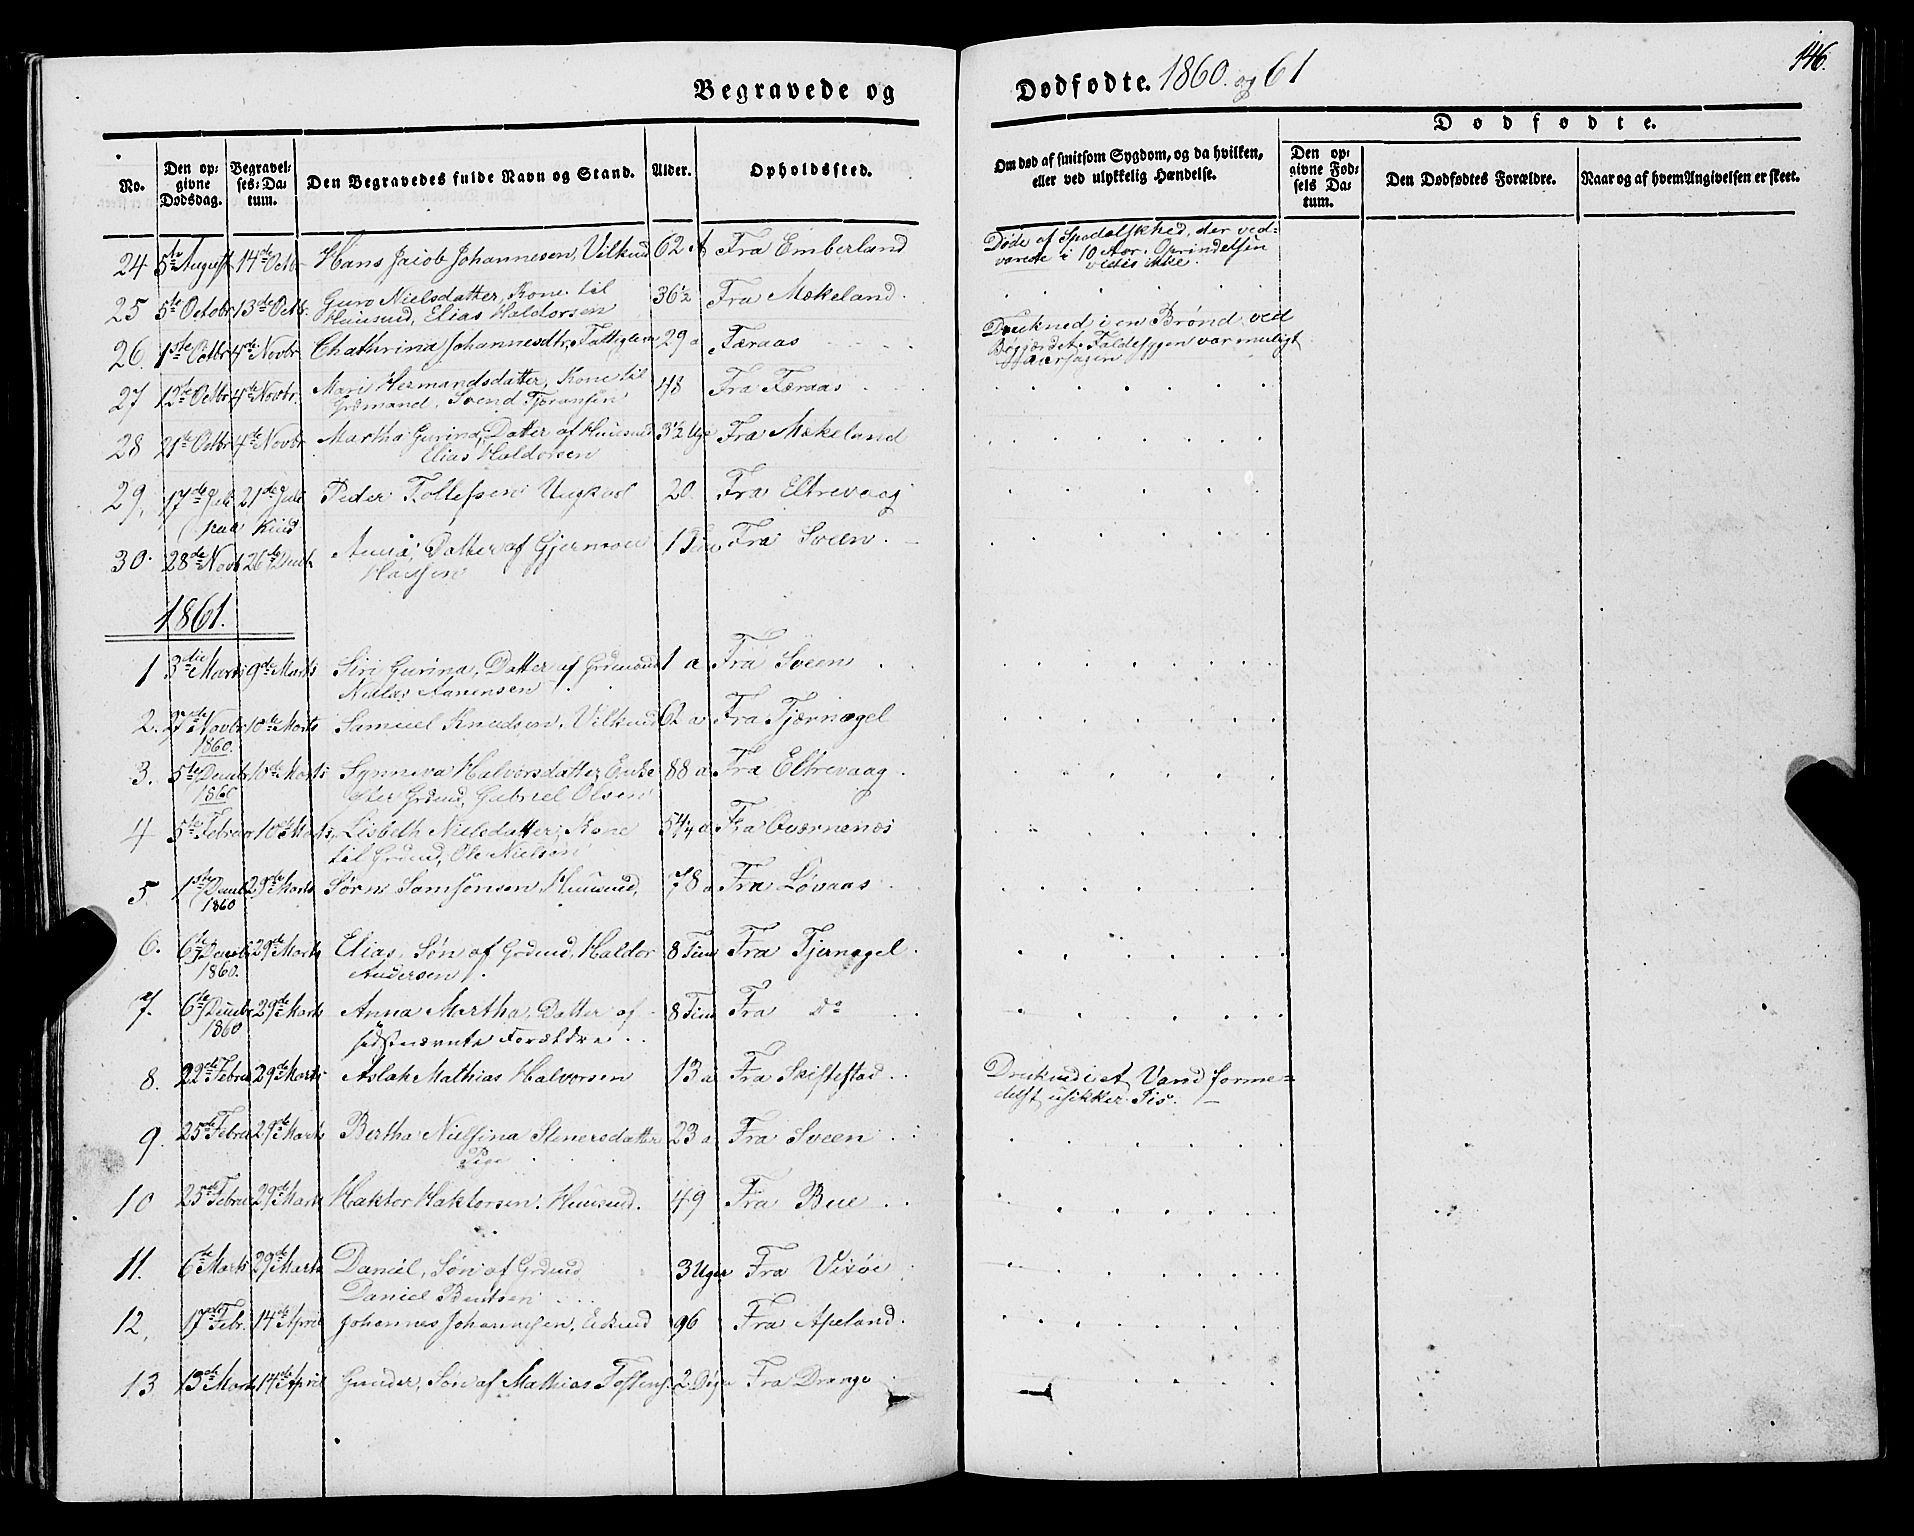 146.
Begravede og Dødfødte. 1860. og 61
Dødfødte.
No.
Den opgivne Dødsdag.
Begravelses-Datum.
Den Begravedes fulde Navn og Stand.
Alder.
Opholdssted.
Om død af smitsom Sygdom, og da hvilken, eller ved ulykkelig Hændelse.
Den opgivne Fødsels Datum.
Den Dødfødtes Forældre.
Naar og af hvem Angivelsen er skeet.
24 5te August 14de Octbr Hans Jacob Johannesen, Vilkud 62 A Fra Emberland Døde af Spedalskhed, der ved-
varede i 10 Aar. Oprindelsen
vides ikke.
25 5te Octobr 13de Octbr. Guro Nielsdatter, Kone til
Huusmd, Elias Haldorsen 36½ Fra Mækeland.
26. 1ste Octbr 4de Novbr Chathrina Johannesdtr, Fattiglem 29 a Færaas Drukned i en Brønd ved
Faldesygen var muligt
Aarsagen
27 12te Octbr 4de Novbr. Mari Hermandsdatter, Kone til
Grdmand, Svend Tjoransen 48 Fra Færaas
28 21de Octbr 4de Novbr Martha Gurina, Datter af Huusmd
Elias Haldorsen 3½ Uge Fra Mækeland
29. 17de Juli 21de Juli Peder Tollefsen Ungkarl 20. Fra Eltrevaag
30. 28de Novbr 26de Decbr Anna, Datter af Gjermon
Fra Sveen.
1861.
1 3die Marts 9de Marts Siri Gurina, Datter af Grdmand
Nielas Aanensen 1 a Fra Sveen
2. 27de Novbr 1860. 10de Marts Samuel Knudsen, Vilkud 62 a Fra Tjernagel
3. 5te Decbr 1860 10de Marts Synneva Halvorsdatter Enke
efter Grdmd, Gabriel Olsen 88 a Fra Eltrevaag
4 5te Februar 10de Marts, Lisbeth Nielsdatter, Kone
til Grdmd, Ole Nielsen 54¼ a Fra Qværnenæs
5. 1ste Decbr 1860 29de Marts Sørn Samsonsen Huusmd, 78 a Fra Løvaas
6. 6te Decbr 1860. 29de Marts Elias, Søn af Grdmd, Haldor
Andersen 8 Tim Fra Tjernagel
7. 6te Decbr 1860 29de Marts Anna Martha, Datter af
sidstnævnte Forældre 8 Tim Fra do
8. 22de Febru 29de Marts Aslak Mathias Halvorsen 13 a Fra Skiftestad Druknedi et Vand forme-
delst usikker Iis.
9. 25de Febru 29de Marts Bertha Nielsina Stenersdatter
Pige 23 a Fra Sveen
10 25de Febru 29de Marts Haktor Haktorsen. Huusmd. 49 Fra Bue
11. 6te Marts 29de Marts Daniel, Søn af Grdmd
Daniel Bentsen 3 Uger Fra Vixøe
12. 17de Febr. 14de April Johannes Johannesen, 96 Fra Apeland.
13 13de Marts 14de April Gunder, Søn af Mathias 2 Fra Drange